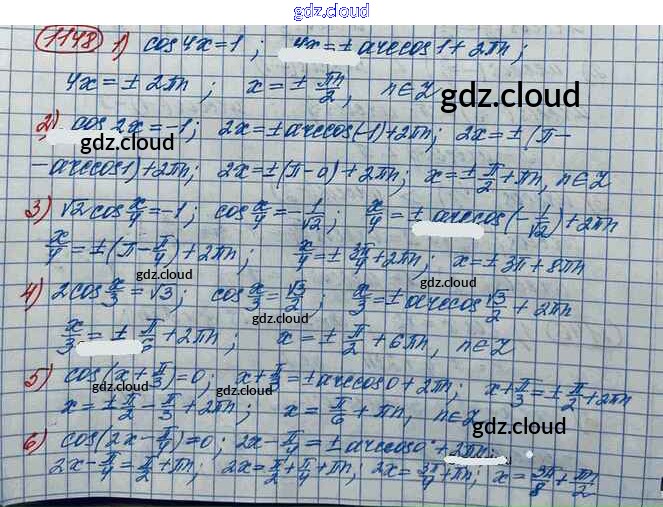 gdz.cloud
1148 1) cos4x=1; 4x=±arccos1+2πn;
4x=±2πn; x=±πn/2, n∈Z
gdz.cloud
2) cos2x=-1; 2x=±arccos(-1)+2πn; 2x=±(π-
-arccos1)+2πn; 2x=±(π-0)+2πn; x=±π/2+πn, n∈Z
gdz.cloud
3) √2cos x/4=-1; cos x/4=-1/√2; x/4=±arccos(-1/√2)+2πn
x/4=±(π-π/4)+2πn; x/4=±3π/4+2πn; x=±3π+8πn
gdz.cloud
4) 2cos x/3=√3; cos x/3=√3/2; x/3=±arccos √3/2+2πn
gdz.cloud
x/3=±π/6+2πn; x=±π/2+6πn, n∈Z
gdz.cloud
5) cos(x+π/3)=0; x+π/3=±arccos0+2πn; x+π/3=±π/2+2πn
gdz.cloud
x=±π/2-π/3+2πn; x=π/6+πn, n∈Z
gdz.cloud
6) cos(2x-π/4)=0; 2x-π/4=±arccos0+2πn;
2x-π/4=π/2+πn; 2x=π/2+π/4+πn; 2x=3π/4+πn; x=3π/8+πn/2